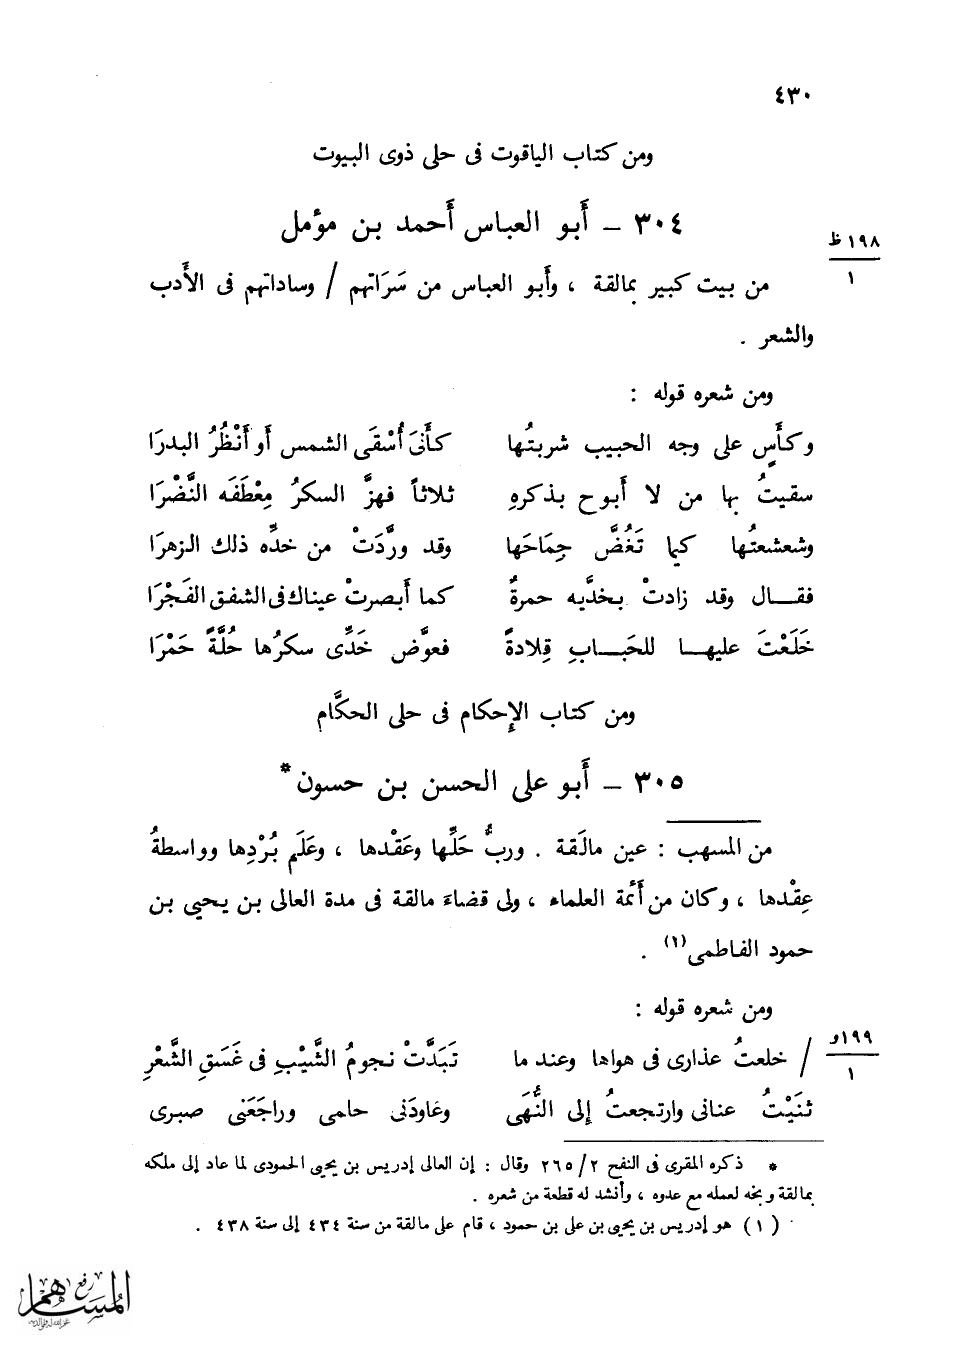 ٤٣٠
ومن كتاب الياقوت فى حلى ذوى البيوت
٣٠٤ – أَبو العباس أَحمد بن مؤمل
١٩٨ظ
١
من بيت كبير بمالقة ، وأَبو العباس من سَرَاتهم / وساداتهم فى الأَدب
والشعر .
ومن شعره قوله :
وكأْسٍ على وجه الحبيب شربتُها كأَنىَ أُسْقَى الشمس أَو أَنْظُرُ البدرَا
سقيتُ بها من لا أَبوح بذكرهِ ثلاثاً فهزَّ السكرُ مِعْطَفَه النَّضْرَا
وشعشعتُها كيما تَغُضَّ جِمَاحَها وقد ورَّدَتْ من خدِّه ذلك الزهرَا
فقال وقد زادتْ بخدَّيه حمرةٌ كما أَبصرتْ عيناك فى الشفق الفَجْرَا
خَلَعْتَ عليها للحَباب قِلادةً فعوَّض خَدِّى سكرُها حُلَّةً حَمْرَا
ومن كتاب الإِحكام فى حلى الحكَّام
٣٠٥ – أَبو على الحسن بن حسون*
من المسهب : عين مالَقة . وربُّ حَلِّها وعَقْدها ، وعَلَم بُرْدِها وواسطةُ
عِقْدها ، وكان من أَئمة العلماء ، ولى قضاءَ مالقة فى مدة العالى بن يحيى بن
حمود الفاطمى(١) .
ومن شعره قوله :
١٩٩و
١
/ خلعتُ عذارى فى هواها وعند ما تَبَدَّتْ نجومُ الشَّيْبِ فى غَسَقِ الشَّعْرِ
ثنَيْتُ عنانى وارتجعتُ إِلى النُّهَى وعَاودَنى حلمى ورَاجَعَنى صبرى
* ذكره المقرى فى النفح ٢/ ٢٦٥ وقال : إن العالى إدريس بن يحيى الحمودى لما عاد إلى ملكه
بمالقة وبخه لعمله مع عدوه ، وأنشد له قطعة من شعره .
(١) هو إدريس بن يحيى بن على بن حمود ، قام على مالقة من سنة ٤٣٤ إلى سنة ٤٣٨ .
رفع
المساهم